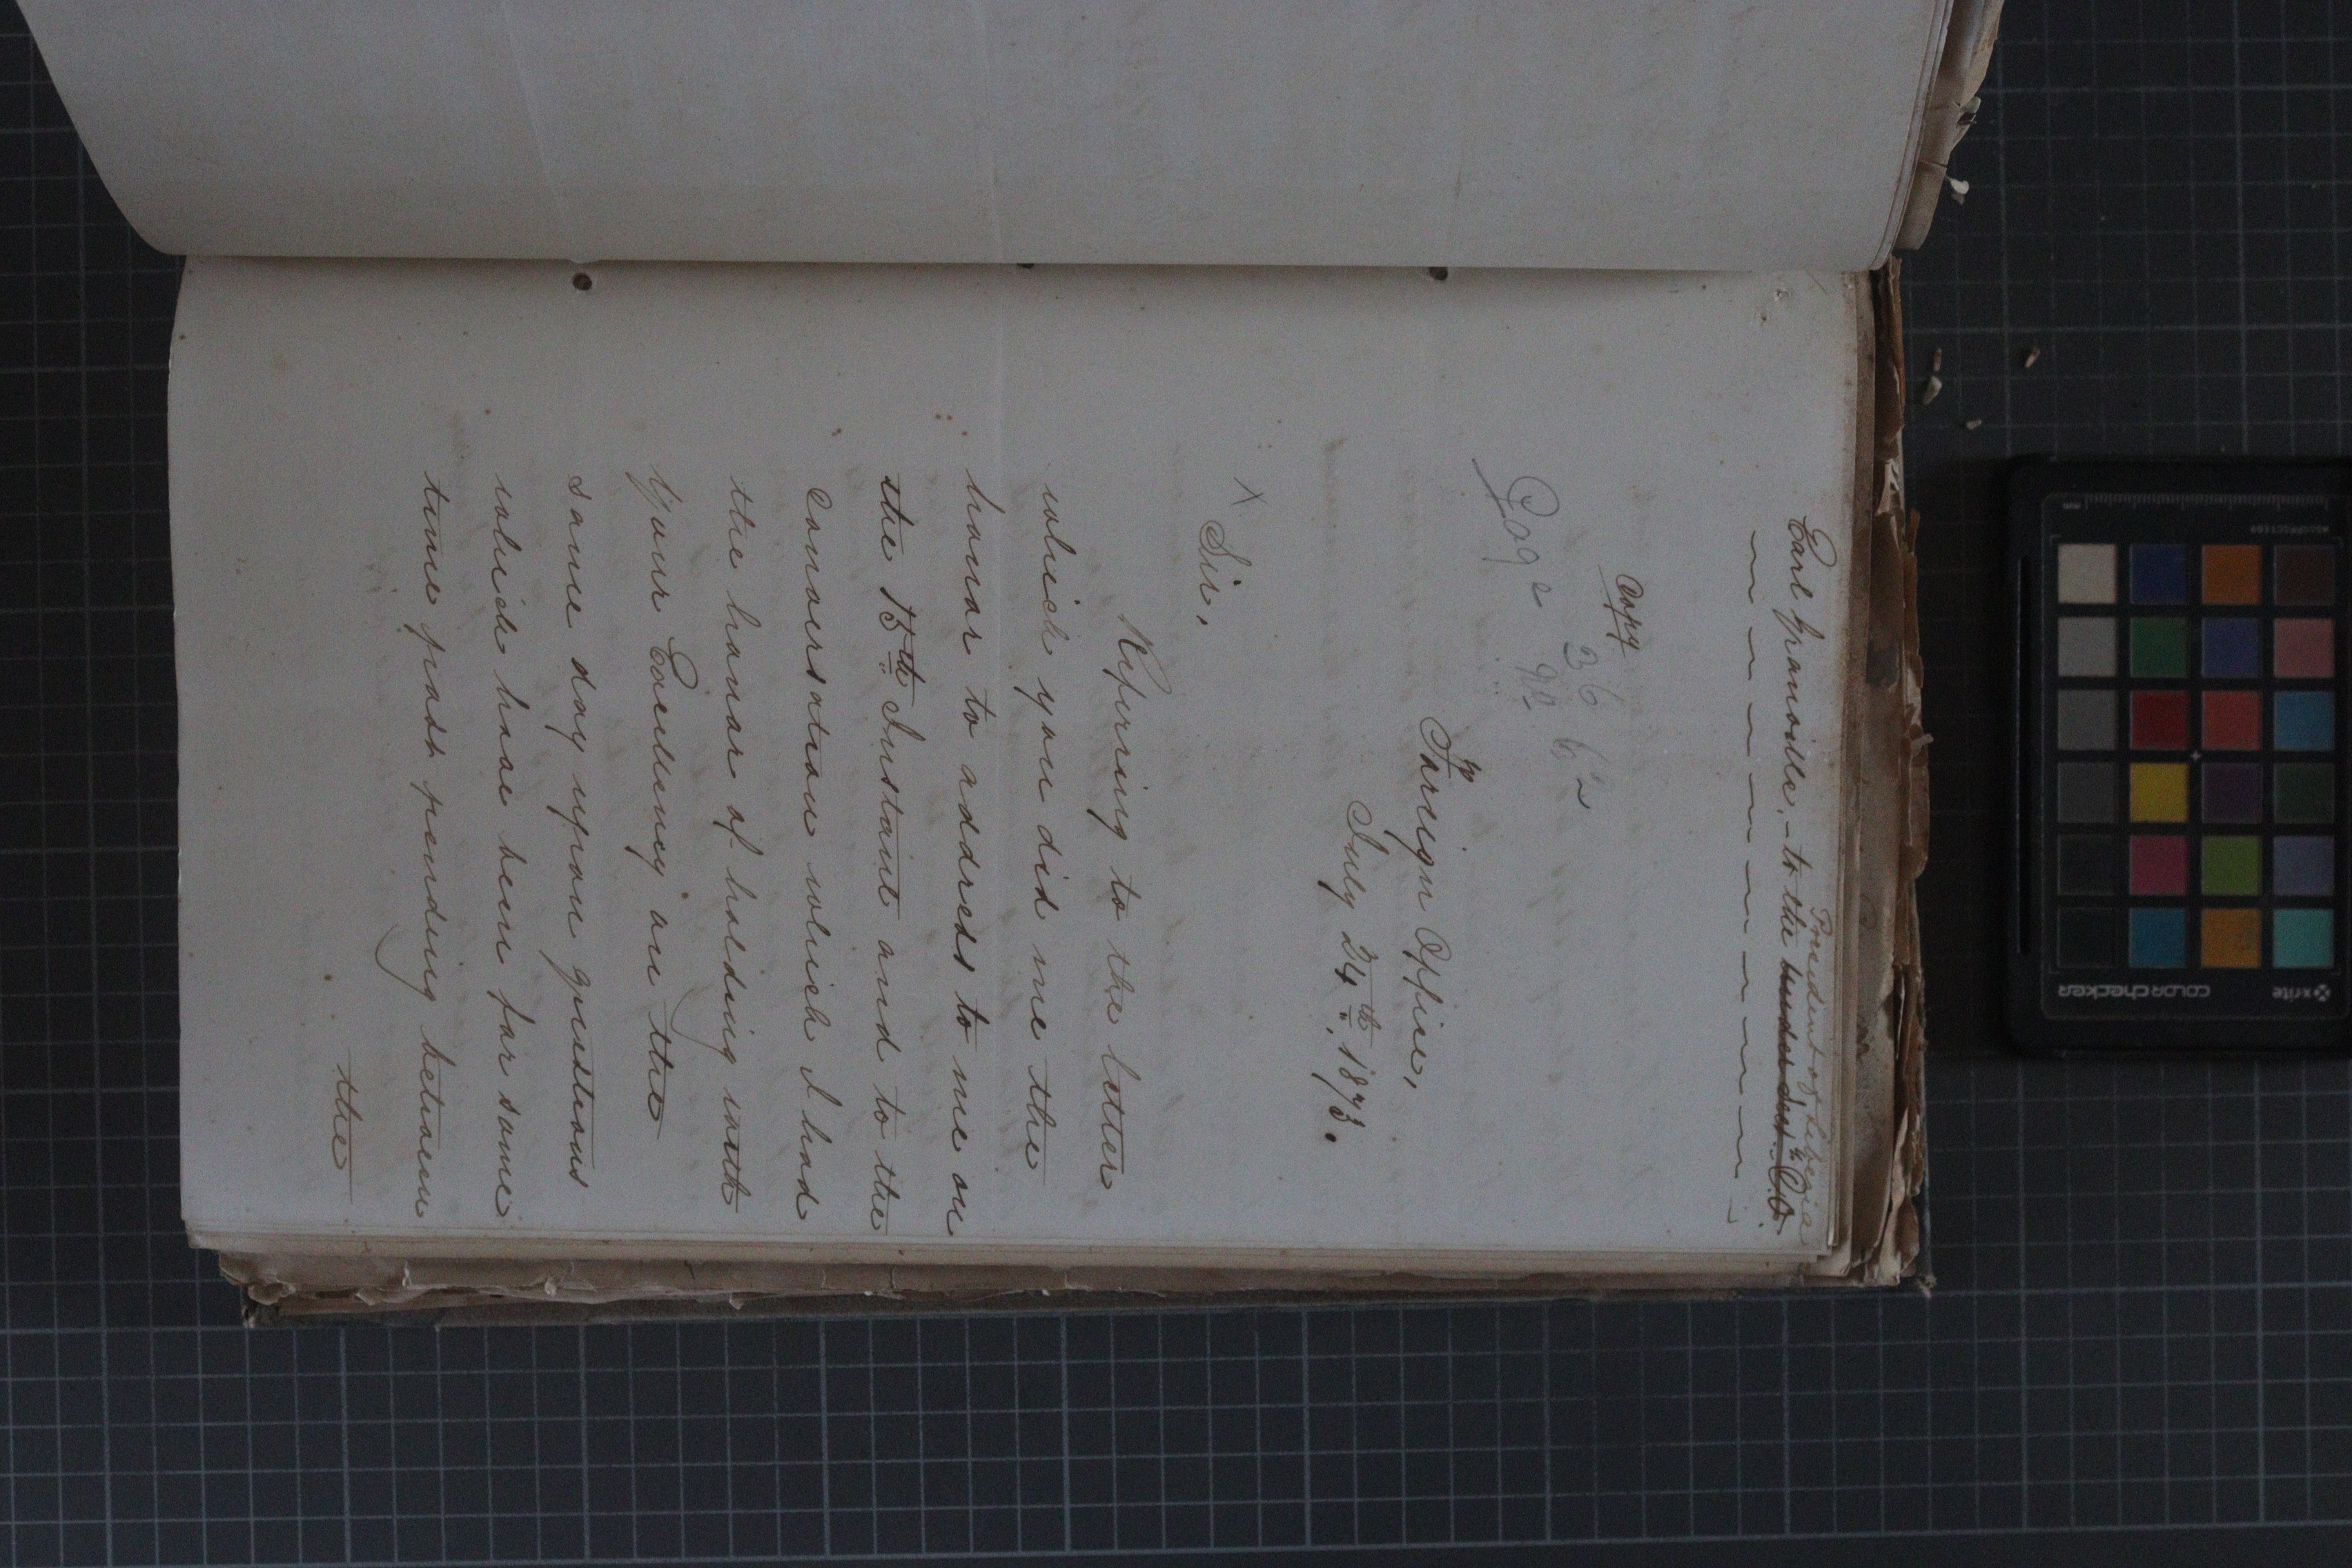 President of Liberia
Earl Granville, - to the Under Secy. C.O.
Copy
36 62
Page 90
Foreign Office,
July 24th, 1873.
x Sir,
Referring to the letter
which you did me the
honor to address to me on
the 15th Instant and to the
conversation which I had
the honor of holding with
Your Excellency on the
same day upon questions
which have been for some
time past pending between
the